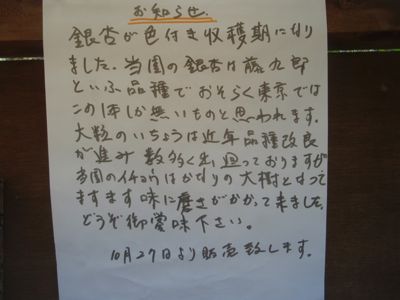 お知らせ
銀杏が色付き収穫期になり
ました。当園の銀杏は藤九郎
といふ品種でおそらく東京では
この1本しか無いものと思われます。
大粒のいちょうは近年品種改良
が進み数多く出廻っておりますが
当園のイチョウはかなりの大樹となって
ますます味に磨きがかかって来ました。
どうぞ御賞味下さい。
10月27日より販売致します。